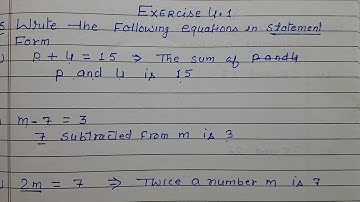 Exercise 4.1
Write the Following equations in statement
Form
p + 4 = 15 ⇒ The sum of p and 4
p and 4 is 15
m - 7 = 3
7 Subtracted from m is 3
2m = 7 ⇒ Twice a number m is 7